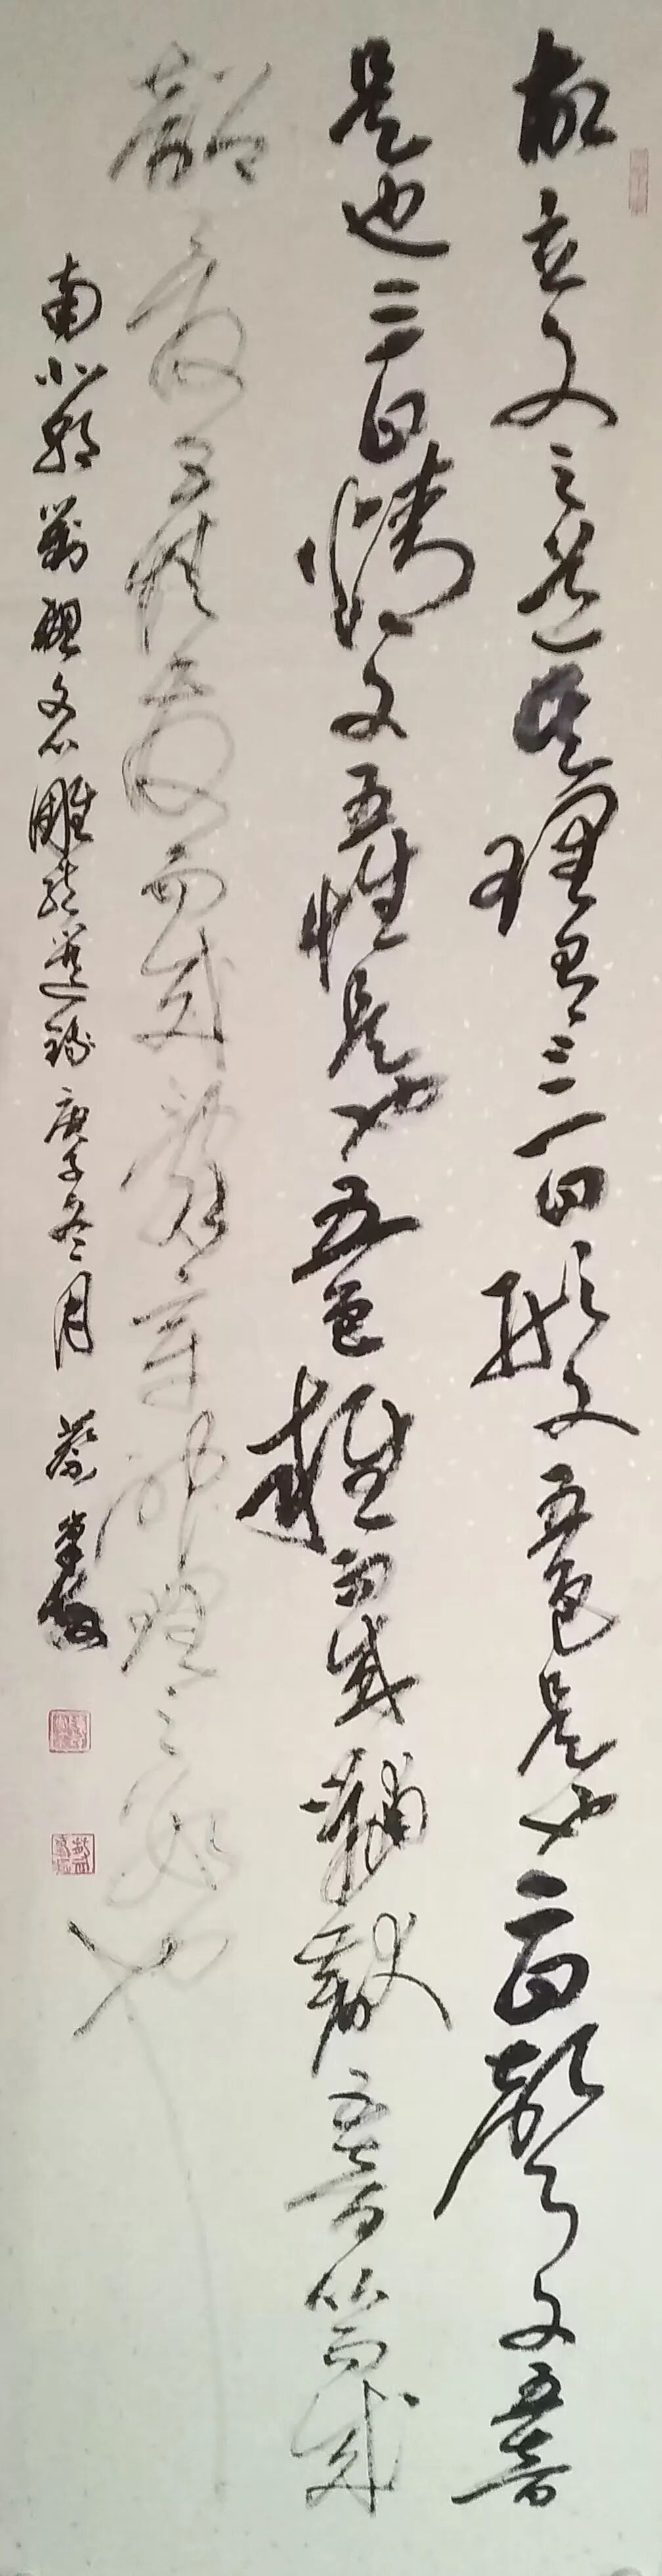 故立文之道其理有三一曰形文五色是也二曰聲文五音
是也三曰情文五性是也五色雜而成黼黻五音比而成
韶夏五性發而成辭章神理之數也
南北朝劉勰文心雕龍選錄庚子冬月蔡